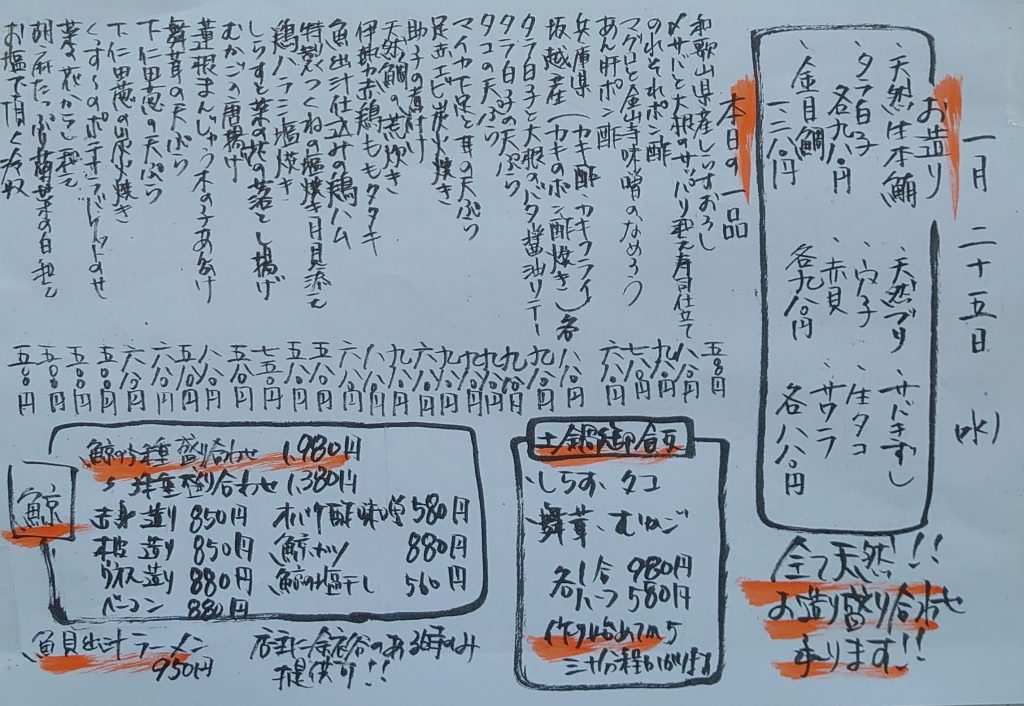 一月 二十五日 水
お造り
、天然生本鮪 、天然ブリ 、サバきずし
、タラ白子 、穴子 、生タコ
各九八〇円 、赤貝 、サワラ
、金目鯛 各九八〇円 各八八〇円
一二八〇円
全て天然!!
お造り盛り合わせ
承ります!!
本日の一品
和歌山県産しらすおろし 五八〇円
〆サバと大根のサッパリ和え寿司仕立て 八八〇円
のれそれポン酢 九八〇円
マグロと金山寺味噌のなめろう 七八〇円
あん肝ポン酢 六八〇円
兵庫県 坂越産(カキ酢 カキフライ カキのポン酢焼き)各 八八〇円
タラ白子と大根のバター醤油ソテー 九八〇円
タラ白子の天ぷら 九八〇円
タコの天ぷら 九八〇円
マイカ下足と茸の天ぷら 九八〇円
足赤エビ炭火焼き
助子の煮付け 六八〇円
天然鯛の煮炊き 九八〇円
伊那赤鶏ももタタキ
魚出汁仕込みの鶏ハム 六八〇円
特製つくねの塩焼き月見添え 五八〇円
鶏ハラミ塩焼き 五八〇円
しらすと菜の花の落とし揚げ 七五〇円
むかごの唐揚げ 五八〇円
蓮根まんじゅう木の子あんかけ 八八〇円
舞茸の天ぷら 五八〇円
下仁田葱の天ぷら 六八〇円
下仁田葱の炭火焼き 六八〇円
くすくすのポテトサラダ
菜の花からし和え 五八〇円
胡麻たっぷり菊菜の白和え 五八〇円
お塩で頂く冷奴 五八〇円
土鍋御飯
、しらす、タコ
舞茸、むかご
各一合 980円
各ハーフ 580円
作り始めてから
三十分程かかります
鯨
鯨の5種盛り合わせ 1,980円
3種盛り合わせ 1,380円
赤身造り 850円 オバケ酢味噌 580円
本皮造り 850円 鯨カツ 880円
さえずり造り 880円 鯨の塩干し 560円
ベーコン 880円
魚貝出汁ラーメン
950円
店主に余裕のある時のみ
提供可!!